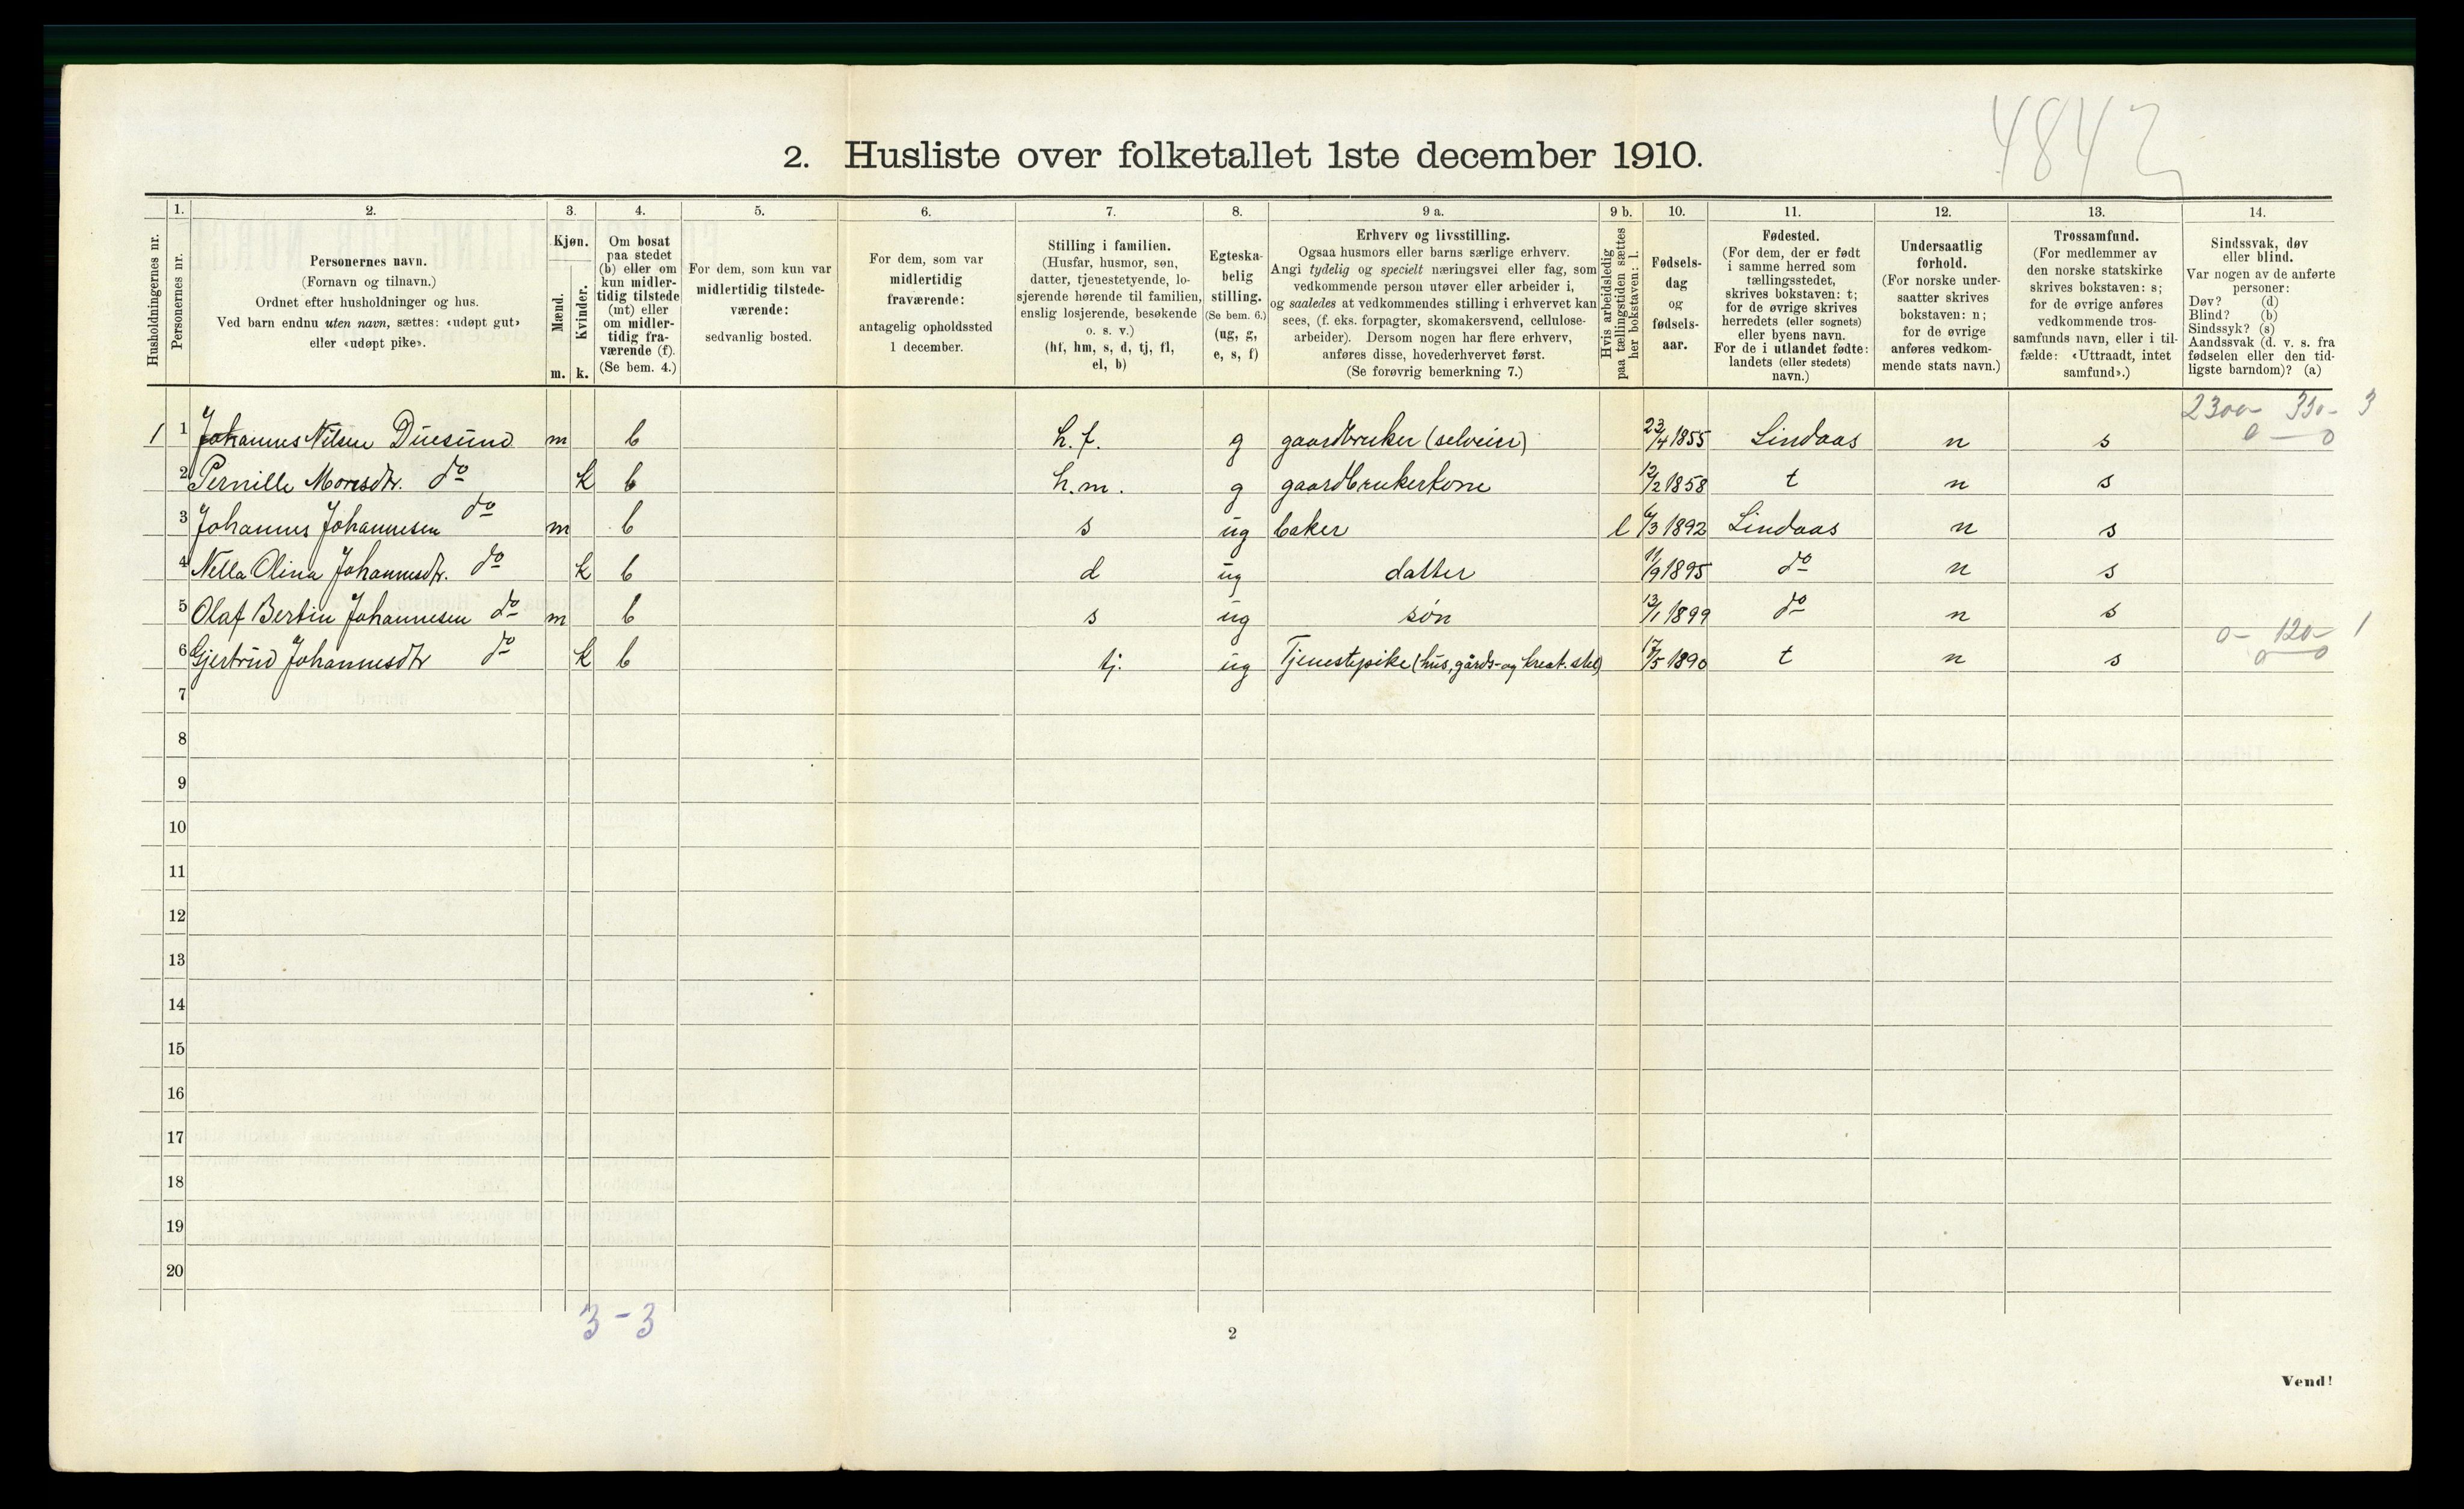 4842
2. Husliste over folketallet 1ste december 1910.
Husholdningernes nr.
1.
Personernes nr.
2.
Personernes navn.
(Fornavn og tilnavn.)
Ordnet efter husholdninger og hus.
Ved barn endnu uten navn, sættes: «udøpt gut»
eller «udøpt pike».
3.
Kjøn.
Mænd.
Kvinder.
m. k.
4.
Om bosat
paa stedet
(b) eller om
kun midler-
tidig tilstede
(mt) eller
om midler-
tidig fra-
værende (f).
(Se bem. 4.)
5.
For dem, som kun var
midlertidig tilstede-
værende:
sedvanlig bosted.
6.
For dem, som var
midlertidig
fraværende:
antagelig opholdssted
1 december.
7.
Stilling i familien.
(Husfar, husmor, søn,
datter, tjenestetyende, lo-
sjerende hørende til familien,
enslig losjerende, besøkende
o. s. v.)
(hf, hm, s, d, tj, fl,
el, b)
8.
Egteska-
belig
stilling.
(Se bem. 6.)
(ug, g,
e, s, f)
9 a.
Erhverv og livsstilling.
Ogsaa husmors eller barns særlige erhverv.
Angi tydelig og specielt næringsvei eller fag, som
vedkommende person utøver eller arbeider i,
og saaledes at vedkommendes stilling i erhvervet kan
sees, (f. eks. forpagter, skomakersvend, cellulose-
arbeider). Dersom nogen har flere erhverv,
anføres disse, hovederhvervet først.
(Se forøvrig bemerkning 7.)
9 b.
Hvis arbeidsledig
paa tællingstiden sættes
her bokstaven: l.
10.
Fødsels-
dag
og
fødsels-
aar.
11.
Fødested.
(For dem, der er født
i samme herred som
tællingsstedet,
skrives bokstaven: t;
for de øvrige skrives
herredets (eller sognets)
eller byens navn.
For de i utlandet fødte:
landets (eller stedets)
navn.)
12.
Undersaatlig
forhold.
(For norske under-
saatter skrives
bokstaven: n;
for de øvrige
anføres vedkom-
mende stats navn.)
13.
Trossamfund.
(For medlemmer av
den norske statskirke
skrives bokstaven: s;
for de øvrige anføres
vedkommende tros-
samfunds navn, eller i til-
fælde: «Uttraadt, intet
samfund».)
14.
Sindssvak, døv
eller blind.
Var nogen av de anførte
personer:
Døv? (d)
Blind? (b)
Sindssyk? (s)
Aandssvak (d. v. s. fra
fødselen eller den tid-
ligste barndom)? (a)
2300- 330- 3
1 1 Johannes Nilsen Duesund m b h.f. g gaardbruker (selveier) 23/4 1855 Lindaas n s 0 — 0
2 Pernille Monsdtr. do k b h.m. g gaardbrukerkone 12/2 1858 t n s
3 Johannes Johannesen do m b s ug baker l 6/3 1892 Lindaas n s
4 Nella Olina Johannesdtr. do k b d ug datter 11/9 1895 do n s
5 Olaf Bertin Johannesen do m b s ug søn 13/1 1899 do n s
0- 120- 1
6 Gjertrud Johannesdtr do k b tj. ug Tjenestepike (hus, gårds- og kreat. stel) 17/5 1890 t n s 0 — 0
7
8
9
10
11
12
13
14
15
16
17
18
19
20
3 - 3
2
Vend!